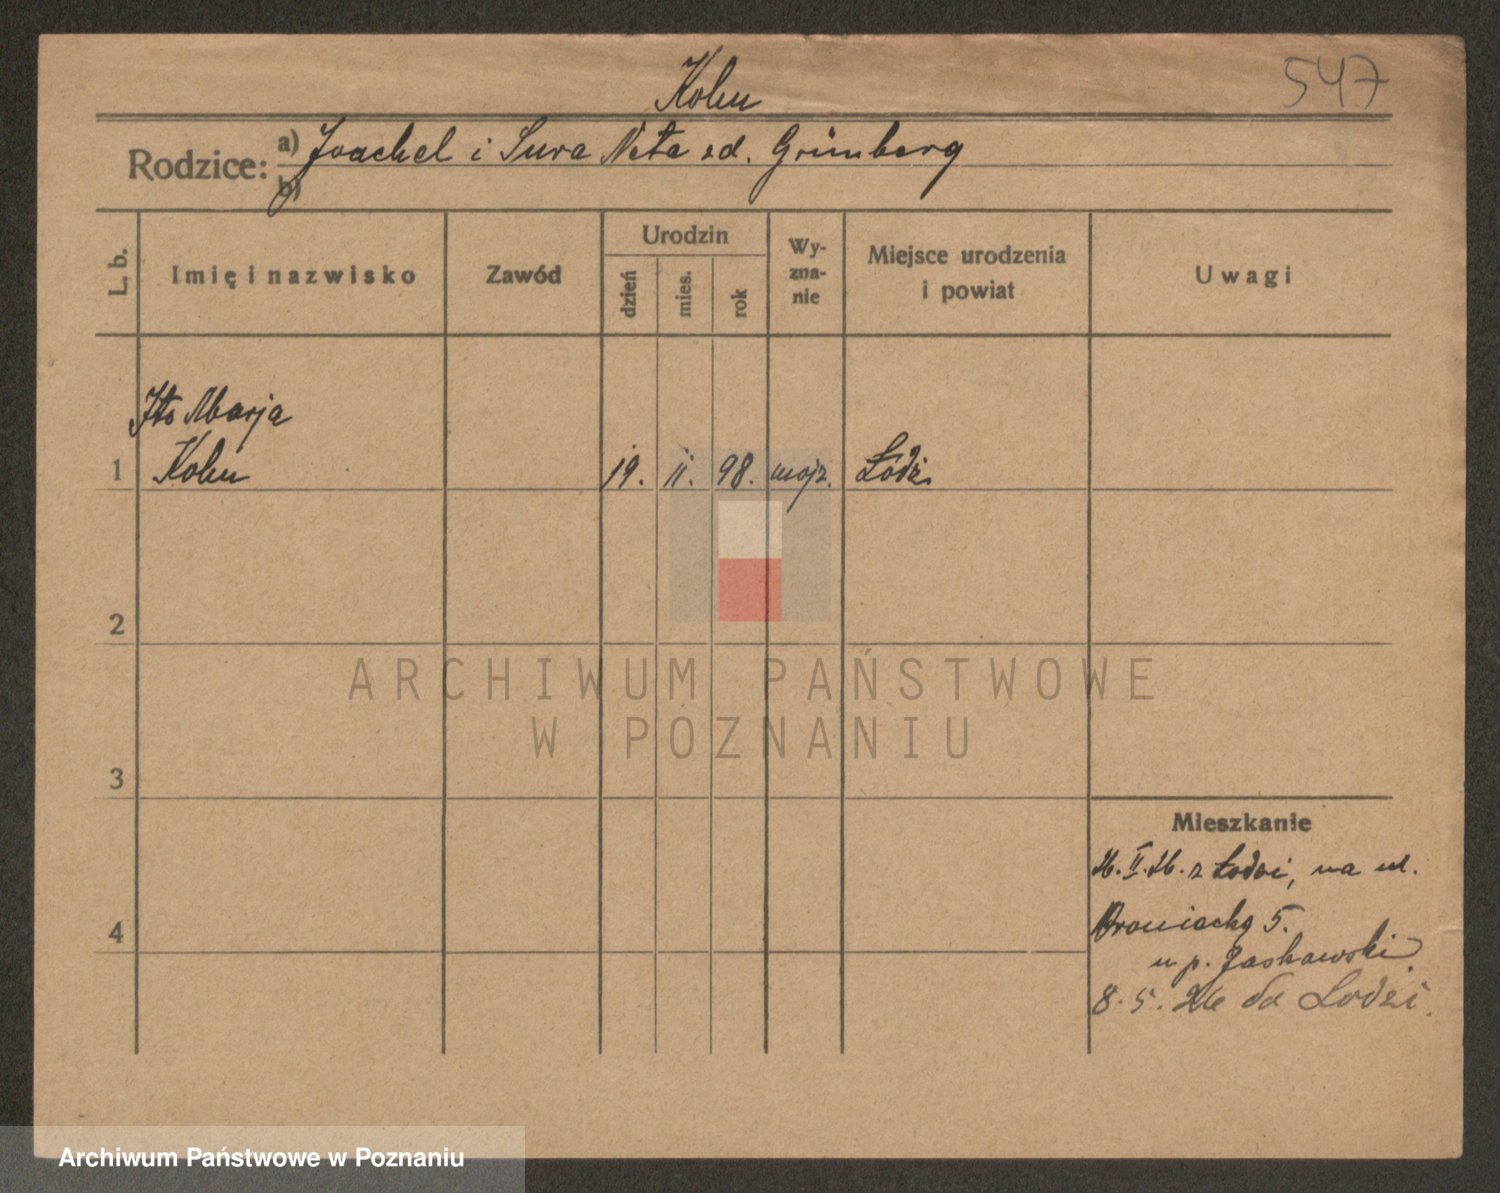 Kohn
547
Rodzice:
a) Joachel i Sura Neta zd. Grünberg
b)
L. b.
Imię i nazwisko
Zawód
Urodzin
dzień
mies.
rok
Wy-
zna-
nie
Miejsce urodzenia
i powiat
Uwagi
Marja
1 Kohn 19. II. 98. mojż. Łódź.
2
3
4
Mieszkanie
26. II. 26. z Łodzi, na ul.
5.
u p. Jaskawski
8. 5. 26 do Łodzi.
ARCHIWUM PAŃSTWOWE
W POZNANIU
Archiwum Państwowe w Poznaniu